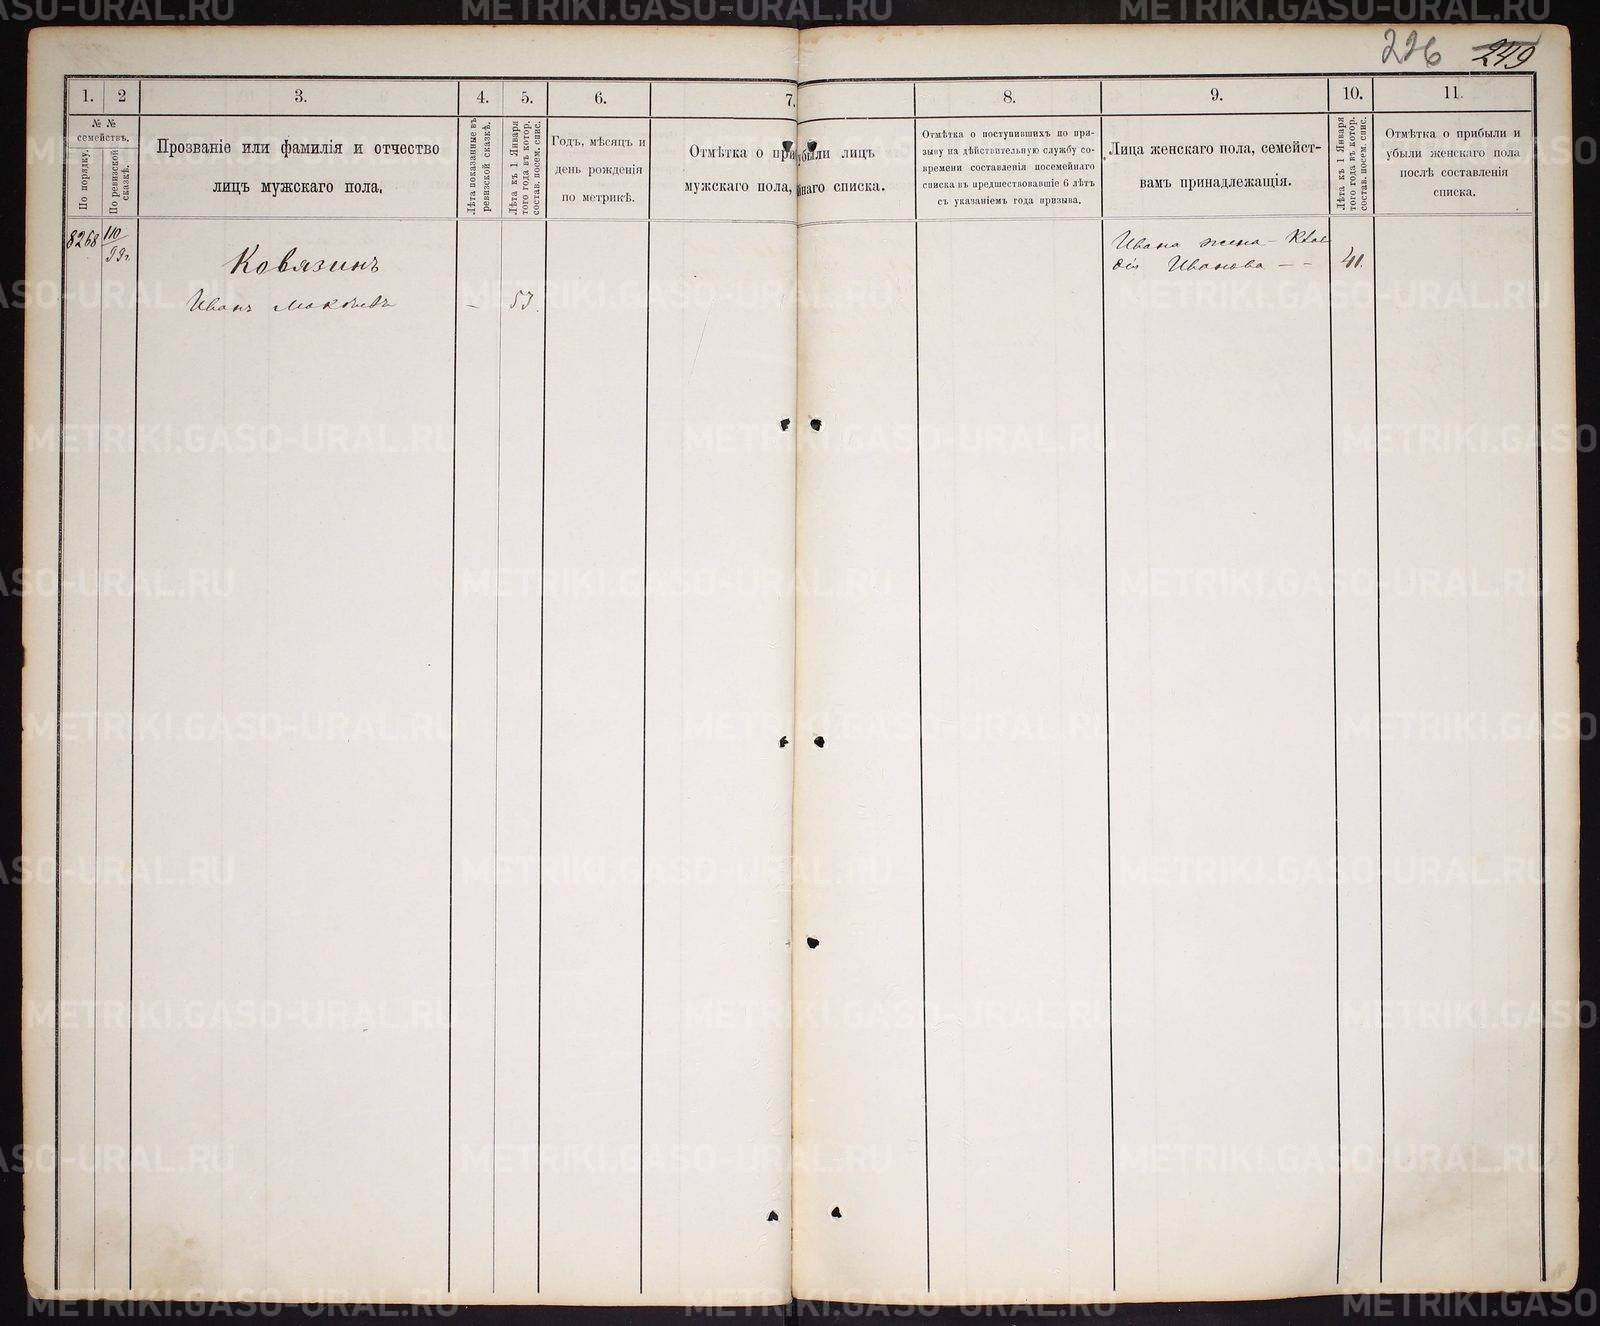 226 249
1. 2 3. 4. 5. 6. 7. 8. 9. 10. 11.
№ № семействъ.
По порядку.
По ревизской сказкѣ.
Прозваніе или фамилія и отчество
лицъ мужскаго пола.
Лѣта показанные въ
ревизской сказкѣ.
Лѣта къ 1 Января
того года въ котор.
состав. посем. спис.
Годъ, мѣсяцъ и
день рожденія
по метрикѣ.
Отмѣтка о при ыбыли лицъ
мужскаго пола, йнаго списка.
Отмѣтка о поступившихъ по при-
зыву на дѣйствительную службу со-
времени составленія посемейнаго
списка въ предшествовавшіе 6 лѣтъ
съ указаніемъ года призыва.
Лица женскаго пола, семейст-
вамъ принадлежащія.
Лѣта къ 1 Января
того года въ котор.
состав. посем. спис.
Отмѣтка о прибыли и
убыли женскаго пола
послѣ составленія
списка.
8268 110
93г.
Ковязинъ
Иванъ – 53.
Ивана жена – Клав
дія Иванова – – 41.
METRIKI.GASO-URAL.RU